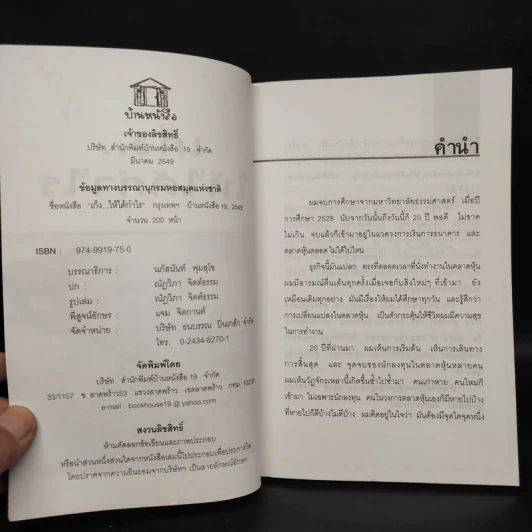 บ้านหนังสือ
เจ้าของลิขสิทธิ์
บริษัท สำนักพิมพ์บ้านหนังสือ 19 จำกัด
มีนาคม 2549
ข้อมูลทางบรรณานุกรมหอสมุดแห่งชาติ
ชื่อหนังสือ "เก็ง...ให้ได้กำไร" กรุงเทพฯ บ้านหนังสือ 19, 2549
จำนวน 200 หน้า
ISBN : 974-9919-75-0
บรรณาธิการ : นภัสนันท์ พุ่มสุโข
ปก : ณัฏวิภา จิตต์ธรรม
รูปเล่ม : ณัฏวิภา จิตต์ธรรม
พิสูจน์อักษร : แจม จิตกานต์
จัดจำหน่าย : บริษัท ธนบรรณ ปิ่นเกล้า จำกัด
โทร. 0-2434-8270-1
จัดพิมพ์โดย
บริษัท สำนักพิมพ์บ้านหนังสือ 19 จำกัด
33/1157 ซ. ลาดพร้าว53 แขวงลาดพร้าว เขตลาดพร้าว กทม. 10230
e-mail : bookhouse19 @ yahoo.com
สงวนลิขสิทธิ์
ห้ามคัดลอกข้อเขียนและภาพประกอบ
หรือนำส่วนหนึ่งส่วนใดจากหนังสือเล่มนี้ไปประกอบเพื่อประการใด
โดยปราศจากความยินยอมจากบริษัทฯ เป็นลายลักษณ์อักษร
คำนำ
ผมจบการศึกษาจากมหาวิทยาลัยธรรมศาสตร์ เมื่อปี
การศึกษา 2528 นับจากวันนั้นถึงวันนี้ก็ 20 ปี พอดี ไม่ขาด
ไม่เกิน จบแล้วก็เข้ามาอยู่ในแวดวงการเงินการธนาคาร และ
ตลาดหุ้นตลอด ไม่ได้ไปไหน
ธุรกิจนี้มันแปลก ตรงที่ตลอดเวลาที่นั่งทำงานในตลาดหุ้น
ผมมีอารมณ์ตื่นเต้นทุกครั้งเมื่อเจอกับสิ่งใหม่ๆ ที่เข้ามา ยัง
เหมือนเดิมทุกอย่าง มันมีเรื่องให้ผมได้ศึกษาทุกวัน และรู้สึกว่า
การเปลี่ยนแปลงในตลาดหุ้น เป็นตัวกระตุ้นให้ชีวิตผมมีความสุข
ในการทำงาน
20 ปีที่ผ่านมา ผมเห็นการเริ่มต้น เห็นการเดินทาง
การสิ้นสุด และ จุดจบของนักลงทุนในตลาดหุ้นหลายคน
ผมเห็นวัฏจักรเหล่านี้เกิดขึ้นซ้ำไปซ้ำมา คนเก่าหาย คนใหม่ก็
เข้ามา ไม่เฉพาะนักลงทุน คนในวงการตลาดหุ้นเองก็มีหายไปบ้าง
ที่หายไปก็ดีบ้างไม่ดีบ้าง ผมคิดอยู่ในใจว่า มันต้องมีจุดใดจุดหนึ่ง